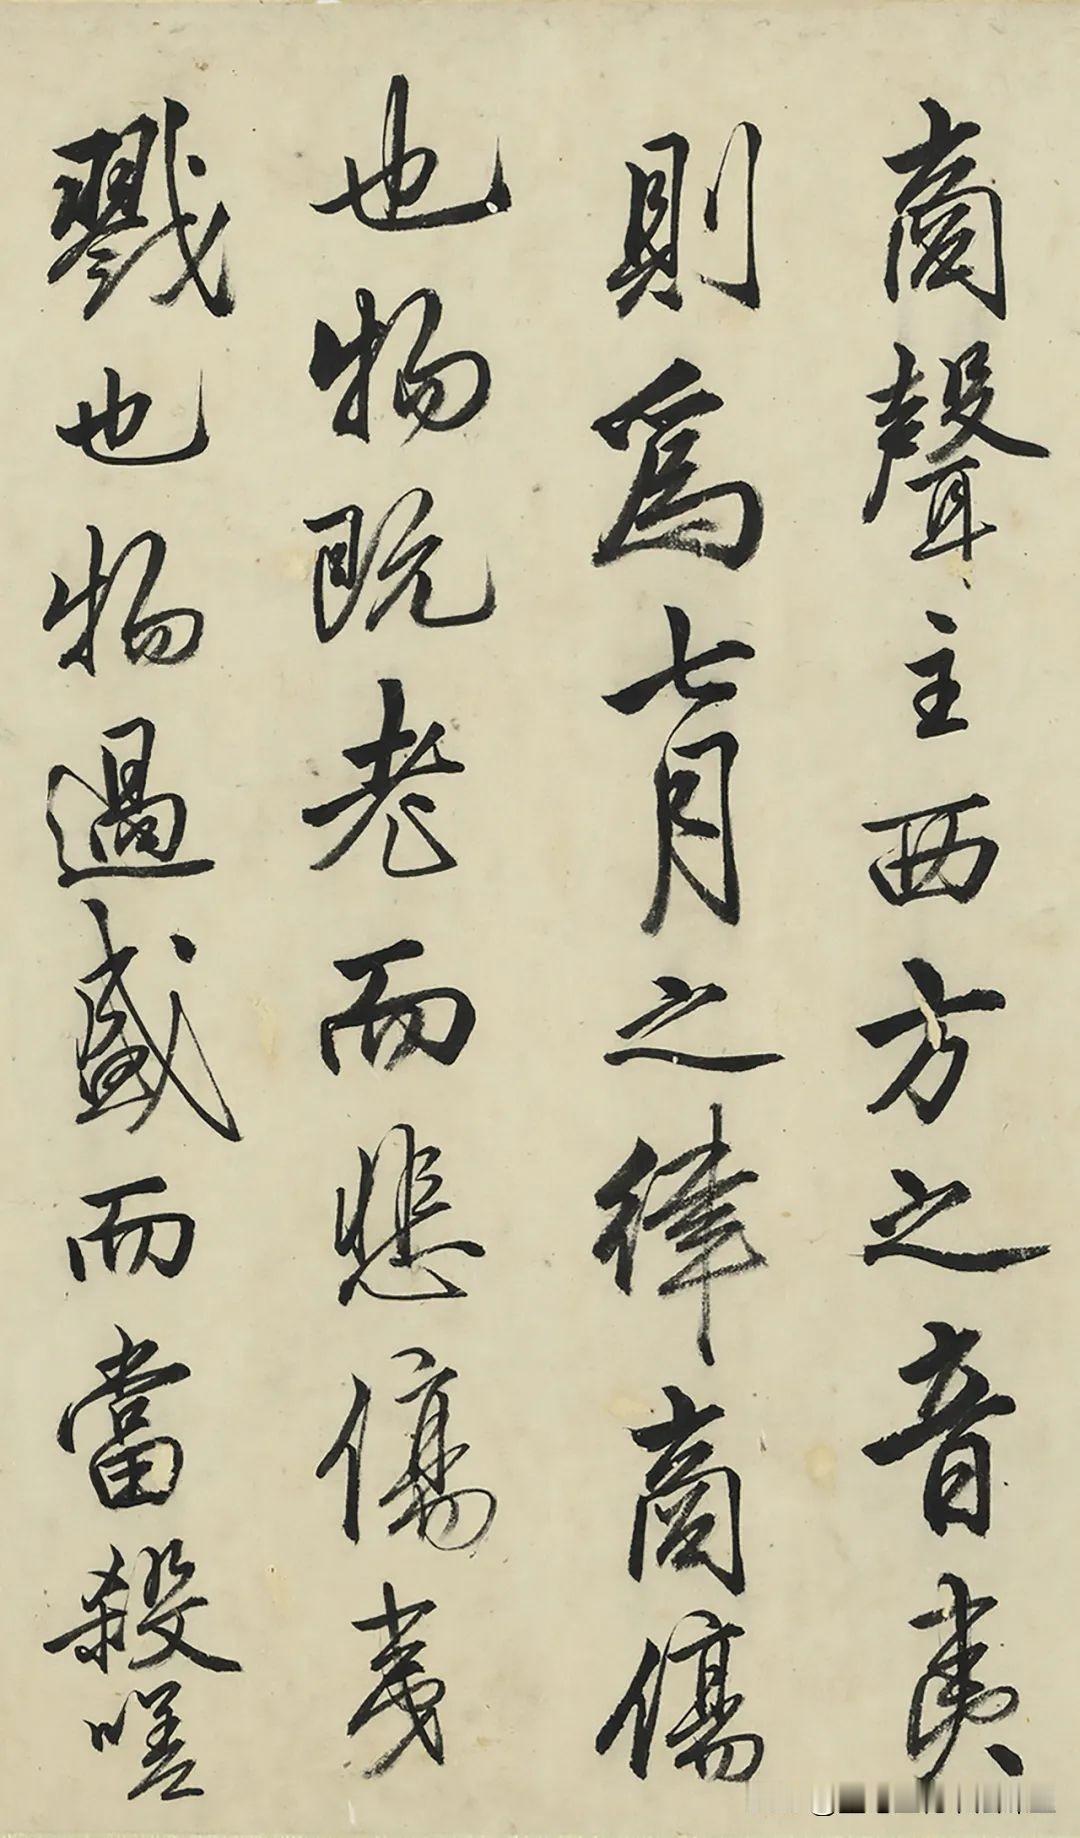 商聲主西方之音夷
則爲七月之律商傷
也物既老而悲傷夷
戮也物過盛而當殺嗟